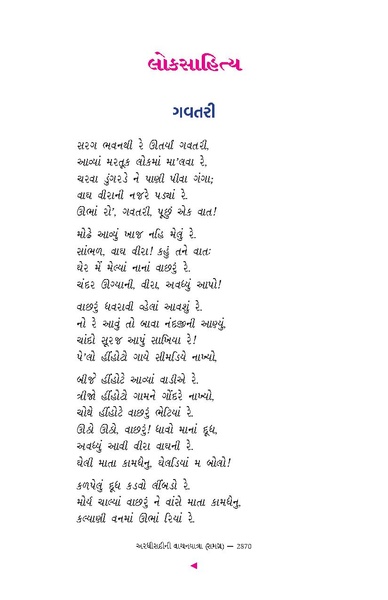 લોકસાહિત્ય
ગવતરી
સરગ ભવનથી રે ઊતર્યાં ગવતરી,
આવ્યાં મરતૂક લોકમાં મા'લવા રે,
ચરવા ડુંગરડે ને પાણી પીવા ગંગા;
વાઘ વીરાની નજરે પડ્યાં રે.
ઊભાં રો', ગવતરી, પૂછું એક વાત!
મોઢે આવ્યું ખાજ નહિ મેલું રે.
સાંભળ, વાઘ વીરા! કહું તને વાતઃ
ઘેર મેં મેલ્યાં નાનાં વાછરું રે.
ચંદર ઊગ્યાની, વીરા, અવધ્યું આપો!
વાછરું ધવરાવી વ્હેલાં આવશું રે.
નો રે આવું તો બાવા નંદજીની આણ્યું,
ચાંદો સૂરજ આપું સાખિયા રે!
પે'લો હીંહોટો ગાયે સીમડિયે નાખ્યો,
બીજે હીંહોટે આવ્યાં વાડીએ રે.
ત્રીજો હીંહોટો ગામને ગોંદરે નાખ્યો,
ચોથે હીંહોટે વાછરું ભેટિયાં રે.
ઊઠો ઊઠો, વાછરું! ધાવો માનાં દૂધ,
અવધ્યું આવી વીરા વાઘની રે.
ઘેલી માતા કામધેનુ, ઘેલડિયાં મ બોલો!
કળપેલું દૂધ કડવો લીંબડો રે.
મોર્ય ચાલ્યાં વાછરું ને વાંસે માતા કામધેનુ,
કલ્યાણી વનમાં ઊભાં રિયાં રે.
અરધીસદીની વાચનયાત્રા (સમગ્ર) — 2870